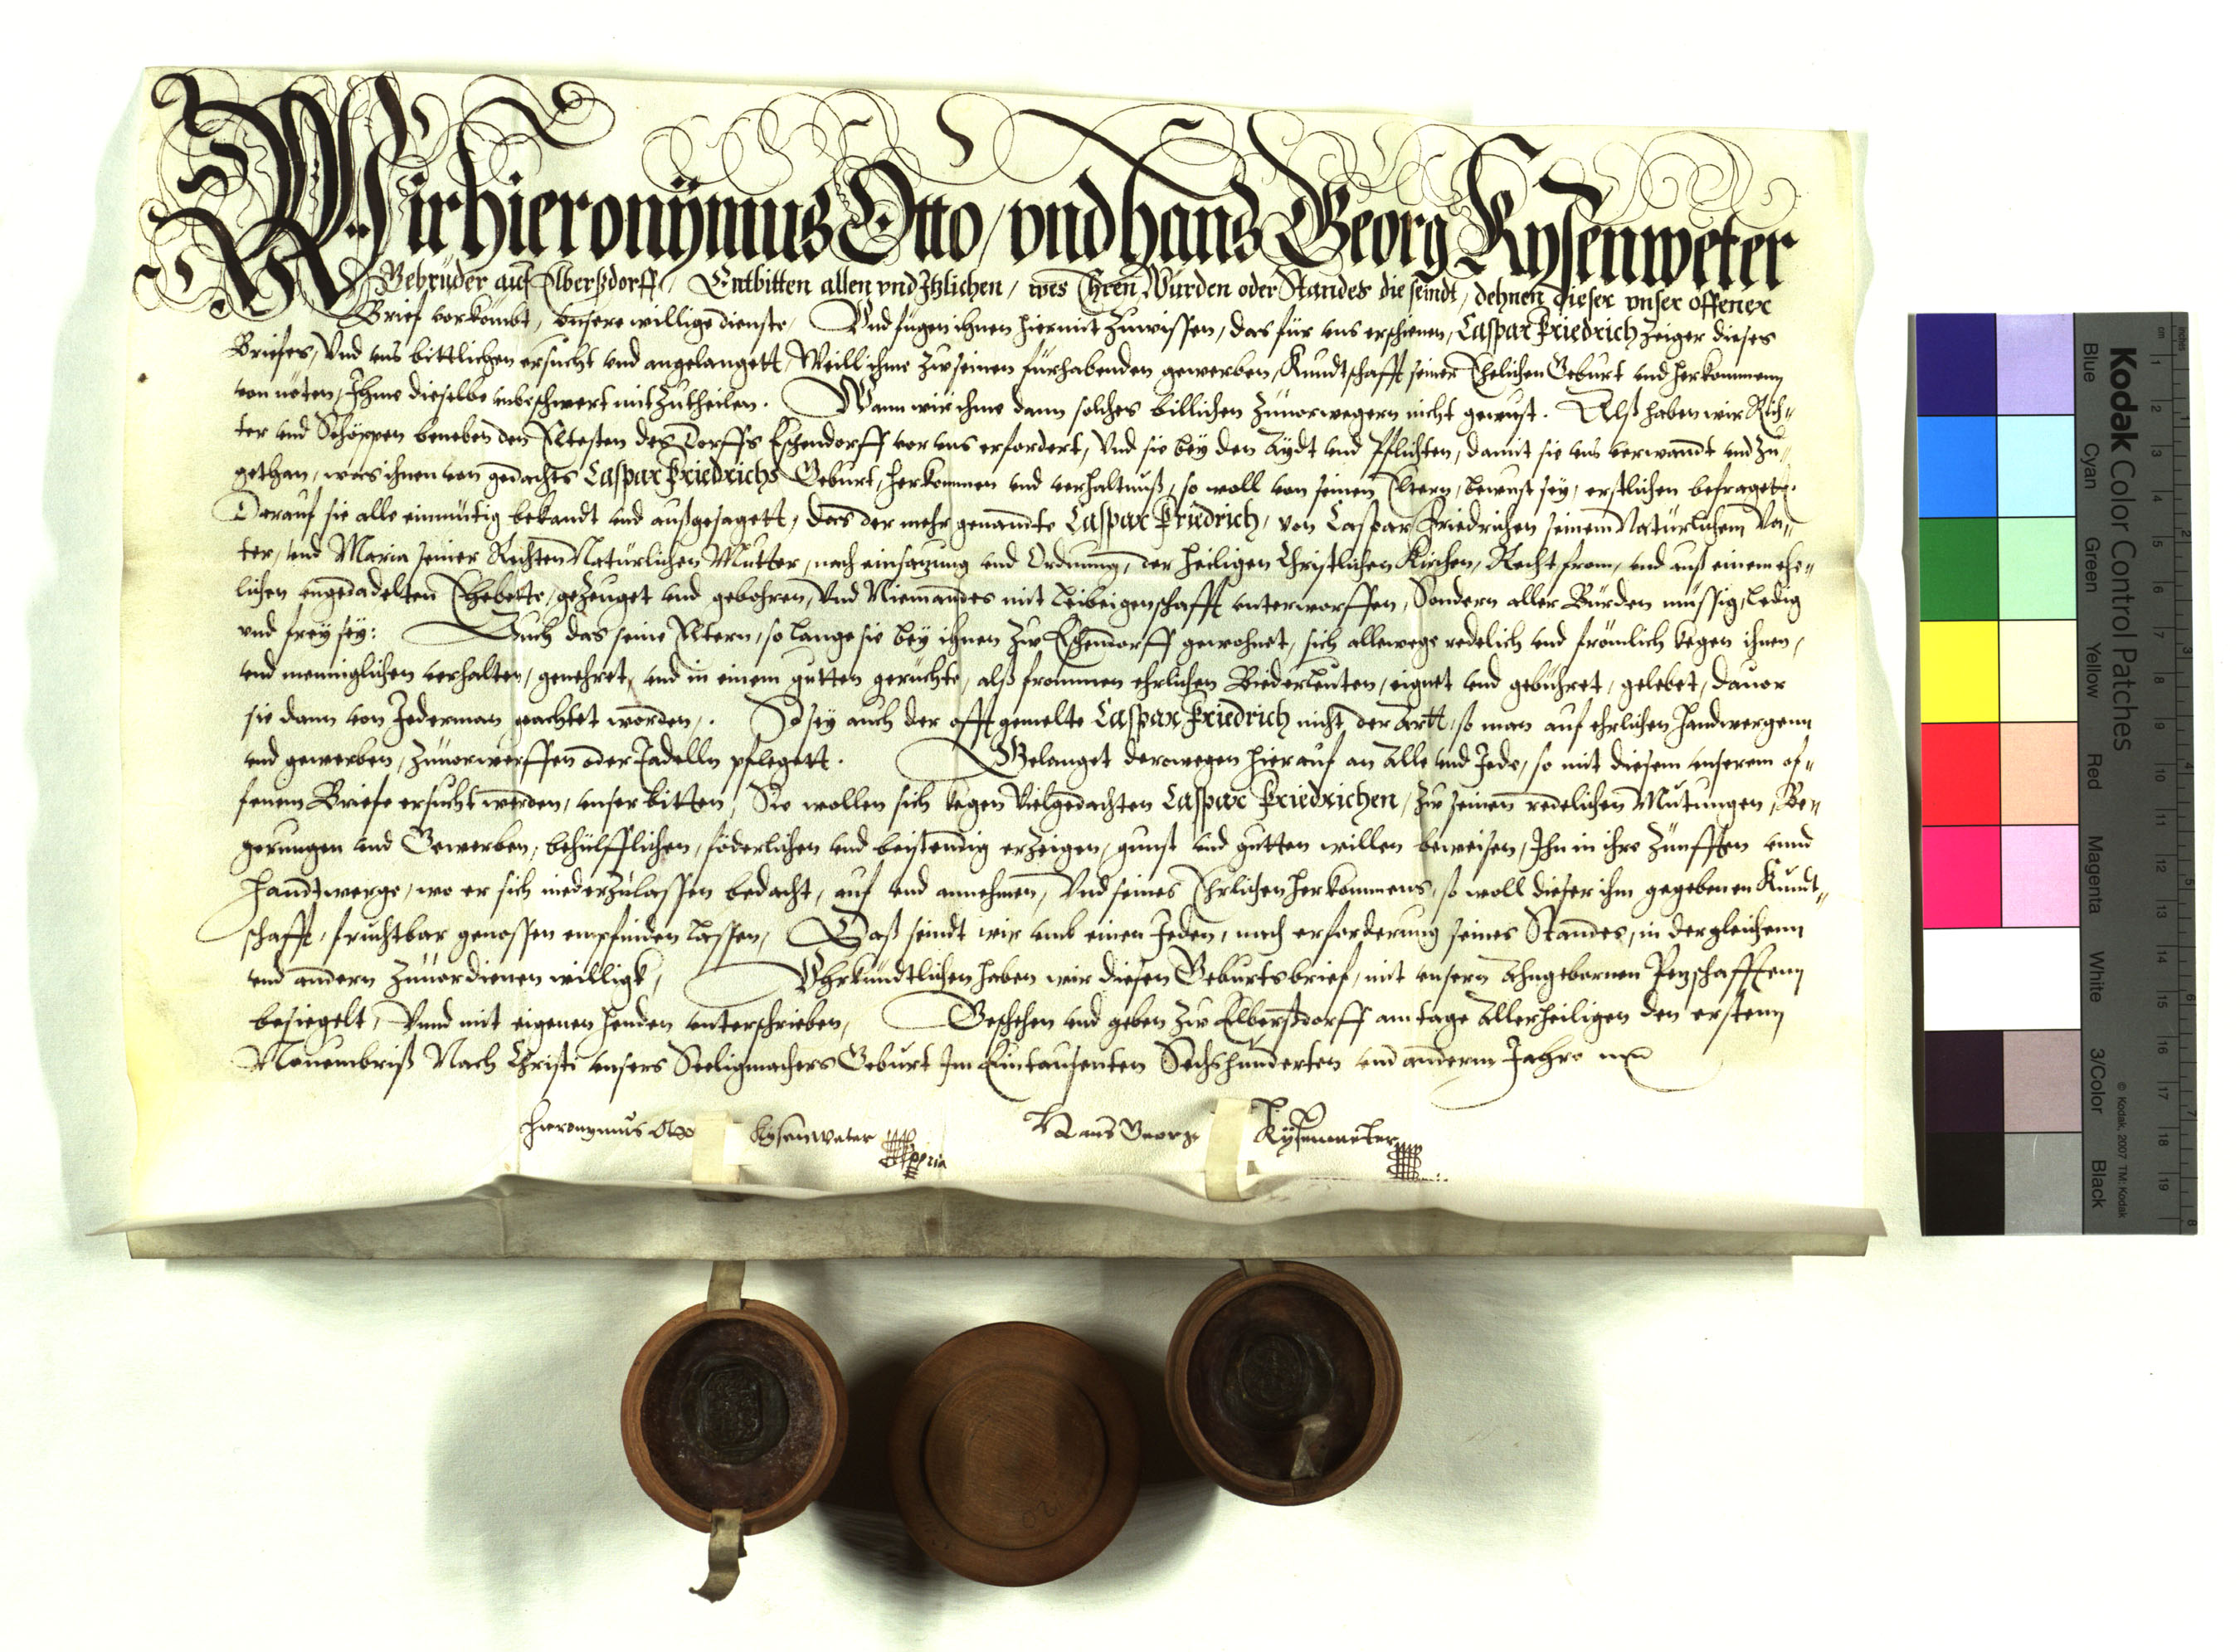 Wir Hieronÿmus Otto / vnd Hanns Georg Kysenweter
Gebrüder auf Elberßdorff / Entbitten allen vnd Itzlichen / wes Ehren Würden oder Standes die seindt / dehnen dieser vnser offener
Brief vorkömbt, vnsere willige dienste, Vnd fügen ihnen hiermit zuwissen, das für vns erschienen, Caspar Friedrich zeiger dieses
Briefes, Vnd vns bittlichen ersucht vnd angelangett, Weill ihme zu seinen fürhabenden gewerben, Kundtschafft seiner Ehelichen Geburt vnd herkommenn
von nöten, Ihme dieselbe vnbeschwert mitzutheilen. Wann wir ihme dann solches billichen zuuorwegern nicht gewust. Alß haben wir Rich-
ter vnd Schöppen beneben den Eltesten des Dorffs Eschendorff vor vns erfordert, Vnd sie bey den Aydt vnd Pflichten, damit sie vns verwandt vnd zu-
gethan, was ihnen von gedachts Caspar Friedrichs Geburt, herkommen vnd verhaltnuß, so woll von seinen Eltern, bewust sey, erstlichen befragett.
Darauf sie alle einmütig bekandt vnd außgesagett, das der mehr genandte Caspar Friedrich, von Caspar Friedrichen seinem Natürlichem Va-
ter, vnd Maria seiner Rechten Natürlichen Mutter, nach einsatzung vnd Ordnung, der heiligen Christlichen Kirchen, Recht from, vnd auß einem ehe-
lichen vngedadelten Ehebette, gezeuget vnd gebohren, Vnd Niemandes mit Leibeigenschafft vnterworffen, Sondern aller Bürden müssig, ledig
vnd frey sey: Auch das seine Eltern, so lange sie bey ihnen zu Eschendorff gewohnet, sich allewege redelich vnd frömlich kegen ihnen,
vnd menniglichen verhalten, genehret, vnd in einem gutten gerüchte, alß frommen ehrlichen Biederleuten, eignet vnd gebühret, gelebet, dauor
sie dann von Jederman geachtet worden. So sey auch der offt gemelte Caspar Friedrich nicht der Artt, so man auf ehrlichen Handwergenn
vnd gewerben, zuuorwerffen oder Tadelln pflegett. Gelanget derowegen hierauf an Alle vnd Jede, so mit diesem vnserem of-
fenem Briefe ersucht werden, vnser bitten, Sie wollen sich kegen Vielgedachten Caspar Friedrichen, zu seinen redelichen Mutungen, Be-
gerungen vnd Gewerben, behülfflichen, föderlichen vnd beistendig erzeigen, gunst vnd gutten willen beweisen, Ihn in ihre Zünfften vnnd
Handtwerge, wo er sich niederzulassen bedacht, auf vnd annehmen, Vnd seines Ehrlichen herkommens, so woll dieser ihm gegebenen Kundt-
schafft, fruchtbar genossen empfinden lassen, Daß seindt wir vmb einen Jeden, nach erforderung seines Standes, in dergleichenn
vnd andern zuuordienen willigk, Vhrkundtlichen haben wir diesen Geburtsbrief, mit vnsern Ahngebornen Petzschafftenn
besiegelt, Vnnd mit eigenen henden vnterschrieben, Geschehen vnd geben zu Elberßdorff am tage Allerheiligen den erstenn
Nouembriß Nach Christi vnsers Seeligmachers Geburt Im Eintausenten Sechshunderten vnd anderm Jahre
Hieronymus Otto Kysenweter
Hans Georg Kysenweter
Kodak Color Control Patches
Blue Cyan Green Yellow Red Magenta White 3/Color Black
© Kodak, 2007 TM: Kodak
cm 1 2 3 4 5 6 7 8 9 10 11 12 13 14 15 16 17 18 19
inches 1 2 3 4 5 6 7 8